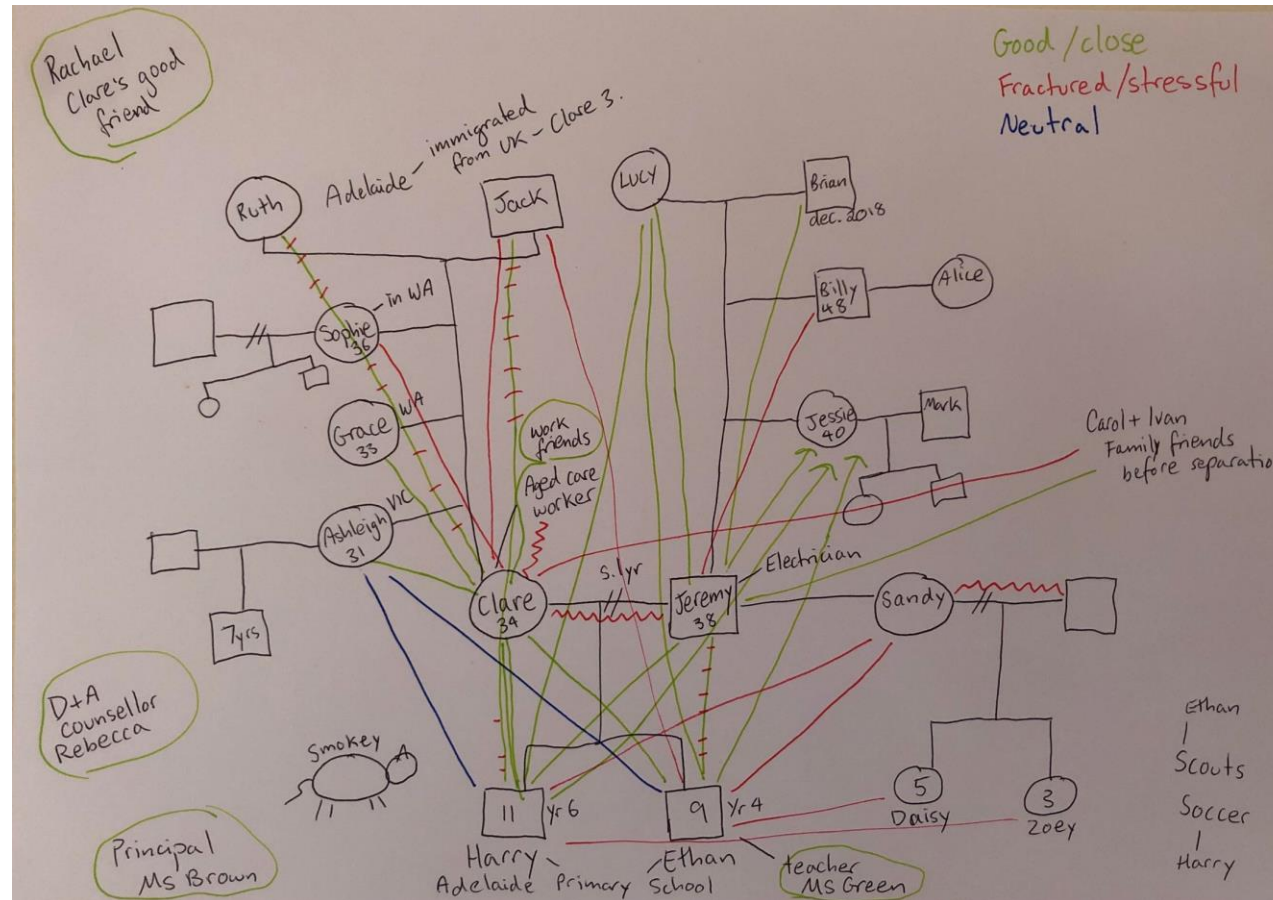 Rachael
Clare's good
friend
Good/close
Fractured/stressful
Neutral
Adelaide - immigrated
from UK - Clare 3.
Ruth
Jack
LUCY
Brian
dec. 2018
Billy
48
Alice
in WA
Sophie
36
Grace
33
WA
Jessie
40
Mark
work
friends
Aged care
worker
Carol + Ivan
Family friends
before separatio
Ashleigh
31
VIC
7yrs
Clare
34
s.1yr
Jeremy
38
Electrician
Sandy
D+A
counsellor
Rebecca
Smokey
Principal
Ms Brown
11
yr 6
9
yr 4
5
Daisy
3
Zoey
Harry
Ethan
Adelaide Primary School
teacher
Ms Green
Ethan
Scouts
Soccer
Harry